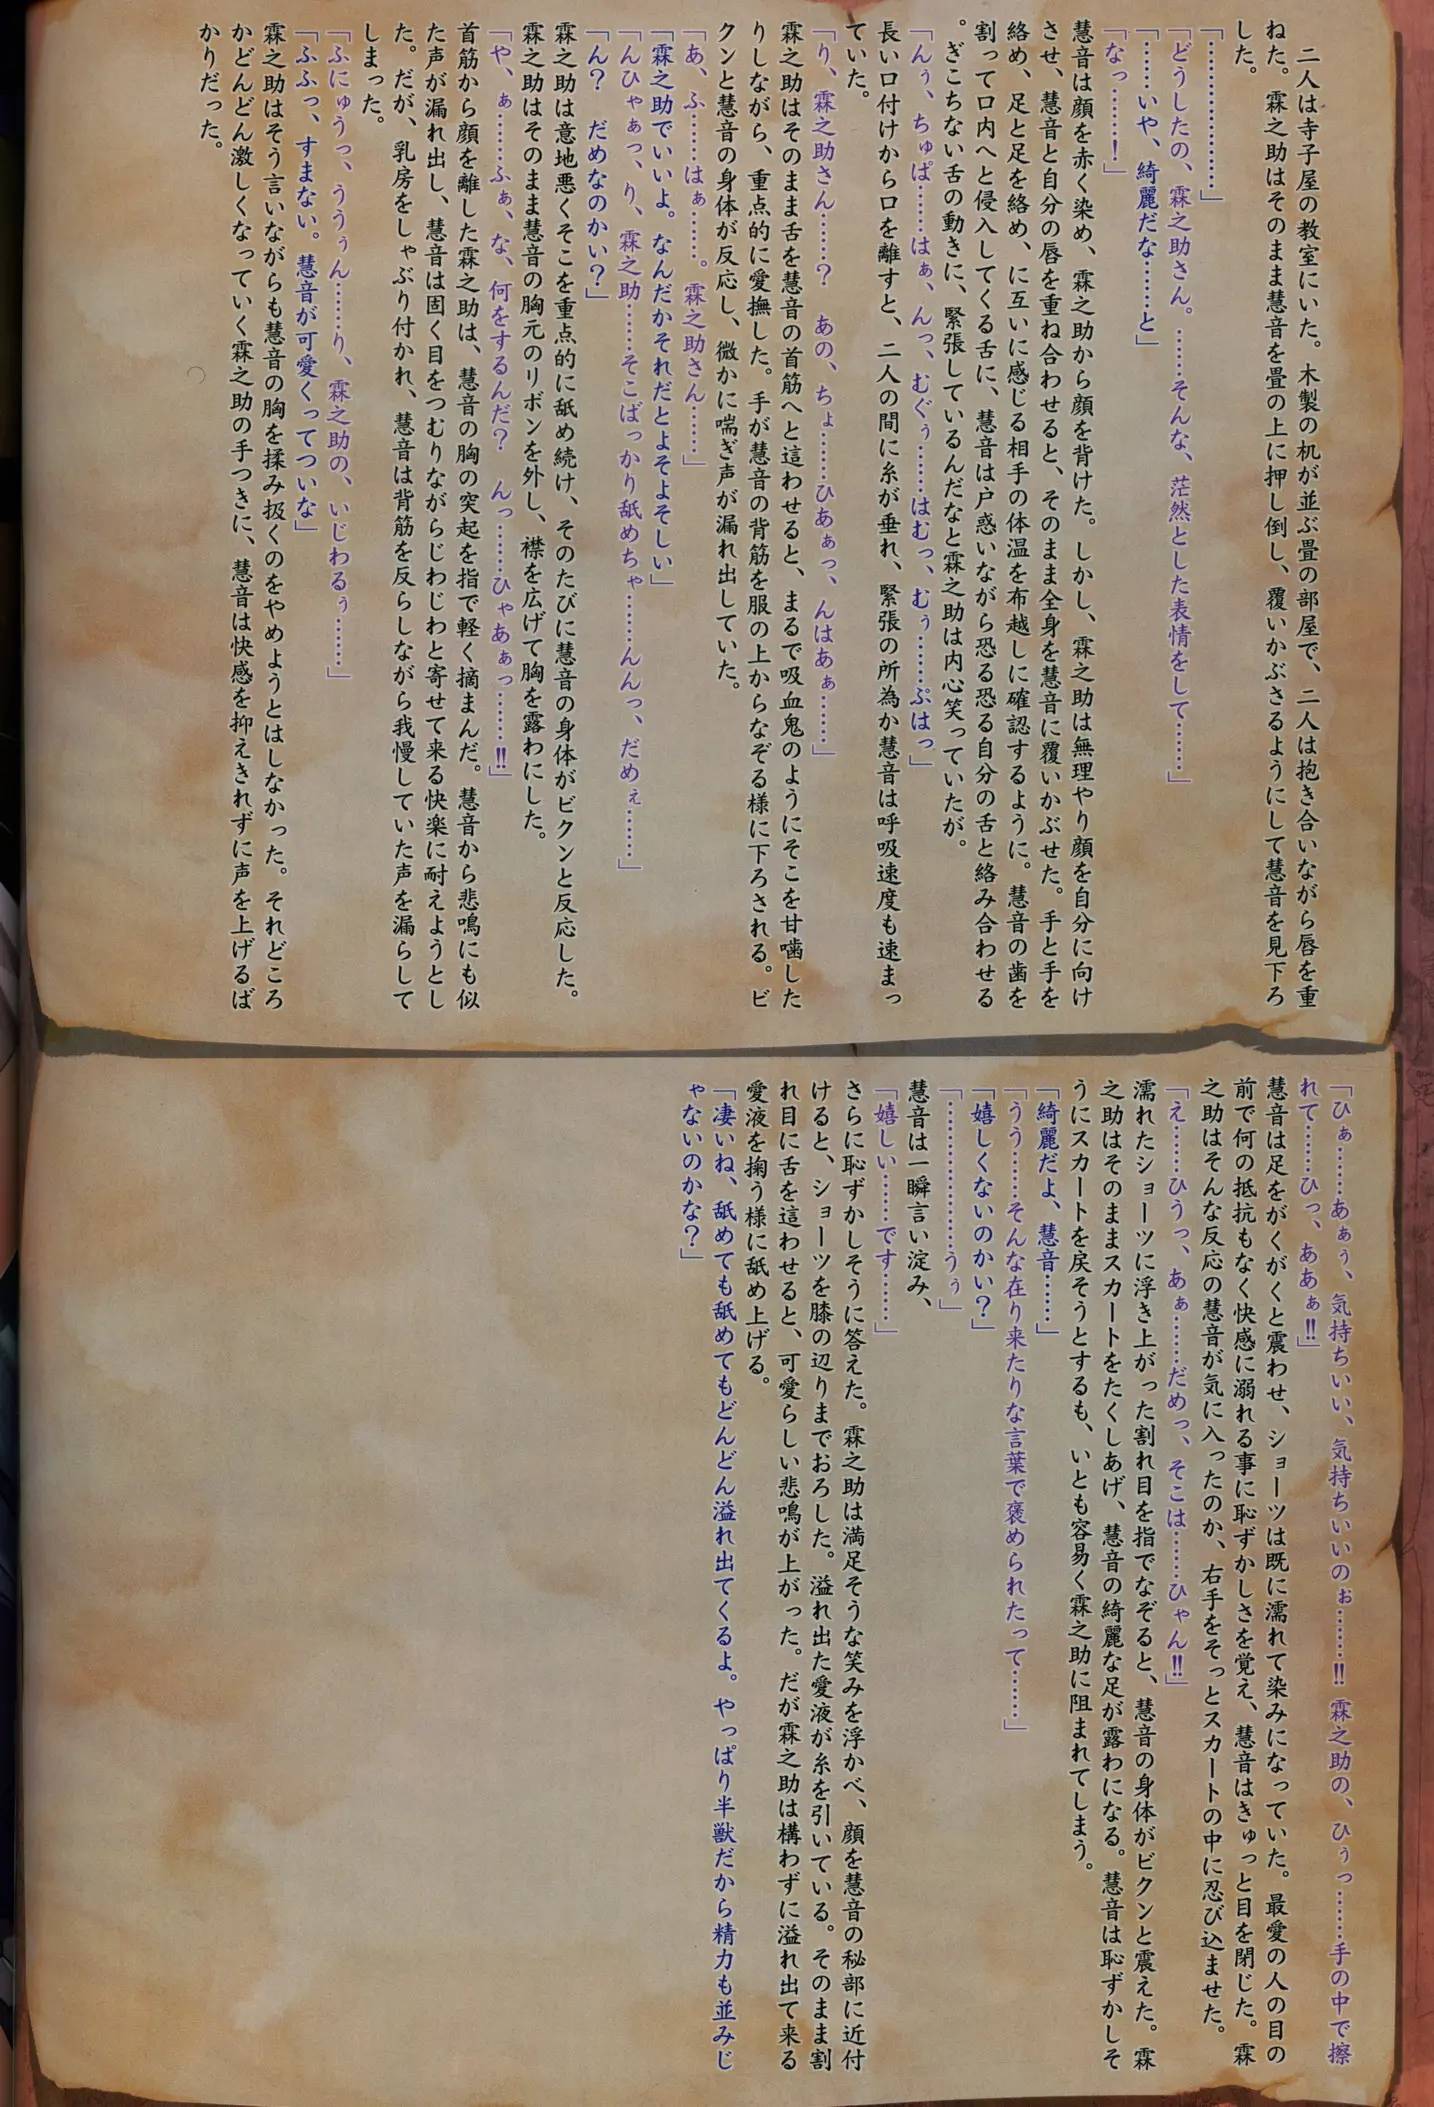 二人は寺子屋の教室にいた。木製の机が並ぶ畳の部屋で、二人は抱き合いながら唇を重
ねた。霖之助はそのまま慧音を畳の上に押し倒し、覆いかぶさるようにして慧音を見下ろ
した。
「………………」
「どうしたの、霖之助さん。……そんな、茫然とした表情をして……」
「……いや、綺麗だな……と」
「なっ……！」
慧音は顔を赤く染め、霖之助から顔を背けた。しかし、霖之助は無理やり顔を自分に向け
させ、慧音と自分の唇を重ね合わせると、そのまま全身を慧音に覆いかぶせた。手と手を
絡め、足と足を絡め、に互いに感じる相手の体温を布越しに確認するように。慧音の歯を
割って口内へと侵入してくる舌に、慧音は戸惑いながら恐る恐る自分の舌と絡み合わせる
。ぎこちない舌の動きに、緊張しているんだなと霖之助は内心笑っていたが。
「んぅ、ちゅぱ……はぁ、んっ、むぐぅ……はむっ、むぅ……ぷはっ」
長い口付けから口を離すと、二人の間に糸が垂れ、緊張の所為か慧音は呼吸速度も速まっ
ていた。
「り、霖之助さん……？　あの、ちょ……ひあぁっ、んはあぁ……」
霖之助はそのまま舌を慧音の首筋へと這わせると、まるで吸血鬼のようにそこを甘噛した
りしながら、重点的に愛撫した。手が慧音の背筋を服の上からなぞる様に下ろされる。ビ
クンと慧音の身体が反応し、微かに喘ぎ声が漏れ出していた。
「あ、ふ……はぁ……。霖之助さん……」
「霖之助でいいよ。なんだかそれだとよそよそしい」
「んひゃぁっ、り、霖之助……そこばっかり舐めちゃ……んんっ、だめぇ……」
「ん？　だめなのかい？」
霖之助は意地悪くそこを重点的に舐め続け、そのたびに慧音の身体がビクンと反応した。
霖之助はそのまま慧音の胸元のリボンを外し、襟を広げて胸を露わにした。
「や、ぁ……ふぁ、な、何をするんだ？　んっ……ひゃあぁっ……‼」
首筋から顔を離した霖之助は、慧音の胸の突起を指で軽く摘まんだ。慧音から悲鳴にも似
た声が漏れ出し、慧音は固く目をつむりながらじわじわと寄せて来る快楽に耐えようとし
た。だが、乳房をしゃぶり付かれ、慧音は背筋を反らしながら我慢していた声を漏らして
しまった。
「ふにゅうっ、ううぅん……り、霖之助の、いじわるぅ……」
「ふふっ、すまない。慧音が可愛くってついな」
霖之助はそう言いながらも慧音の胸を揉み扱くのをやめようとはしなかった。それどころ
かどんどん激しくなっていく霖之助の手つきに、慧音は快感を抑えきれずに声を上げるば
かりだった。
「ひぁ……あぁぅ、気持ちいい、気持ちいいのぉ……‼霖之助の、ひぅっ……手の中で擦
れて……ひっ、ああぁ‼」
慧音は足をがくがくと震わせ、ショーツは既に濡れて染みになっていた。最愛の人の目の
前で何の抵抗もなく快感に溺れる事に恥ずかしさを覚え、慧音はきゅっと目を閉じた。霖
之助はそんな反応の慧音が気に入ったのか、右手をそっとスカートの中に忍び込ませた。
「え……ひうっ、あぁ……だめっ、そこは……ひゃん‼」
濡れたショーツに浮き上がった割れ目を指でなぞると、慧音の身体がビクンと震えた。霖
之助はそのままスカートをたくしあげ、慧音の綺麗な足が露わになる。慧音は恥ずかしそ
うにスカートを戻そうとするも、いとも容易く霖之助に阻まれてしまう。
「綺麗だよ、慧音……」
「うう……そんな在り来たりな言葉で褒められたって……」
「嬉しくないのかい？」
「………………うぅ」
慧音は一瞬言い淀み、
「嬉しい……です……」
さらに恥ずかしそうに答えた。霖之助は満足そうな笑みを浮かべ、顔を慧音の秘部に近付
けると、ショーツを膝の辺りまでおろした。溢れ出た愛液が糸を引いている。そのまま割
れ目に舌を這わせると、可愛らしい悲鳴が上がった。だが霖之助は構わずに溢れ出て来る
愛液を掬う様に舐め上げる。
「凄いね、舐めても舐めてもどんどん溢れ出てくるよ。やっぱり半獣だから精力も並みじ
ゃないのかな？」